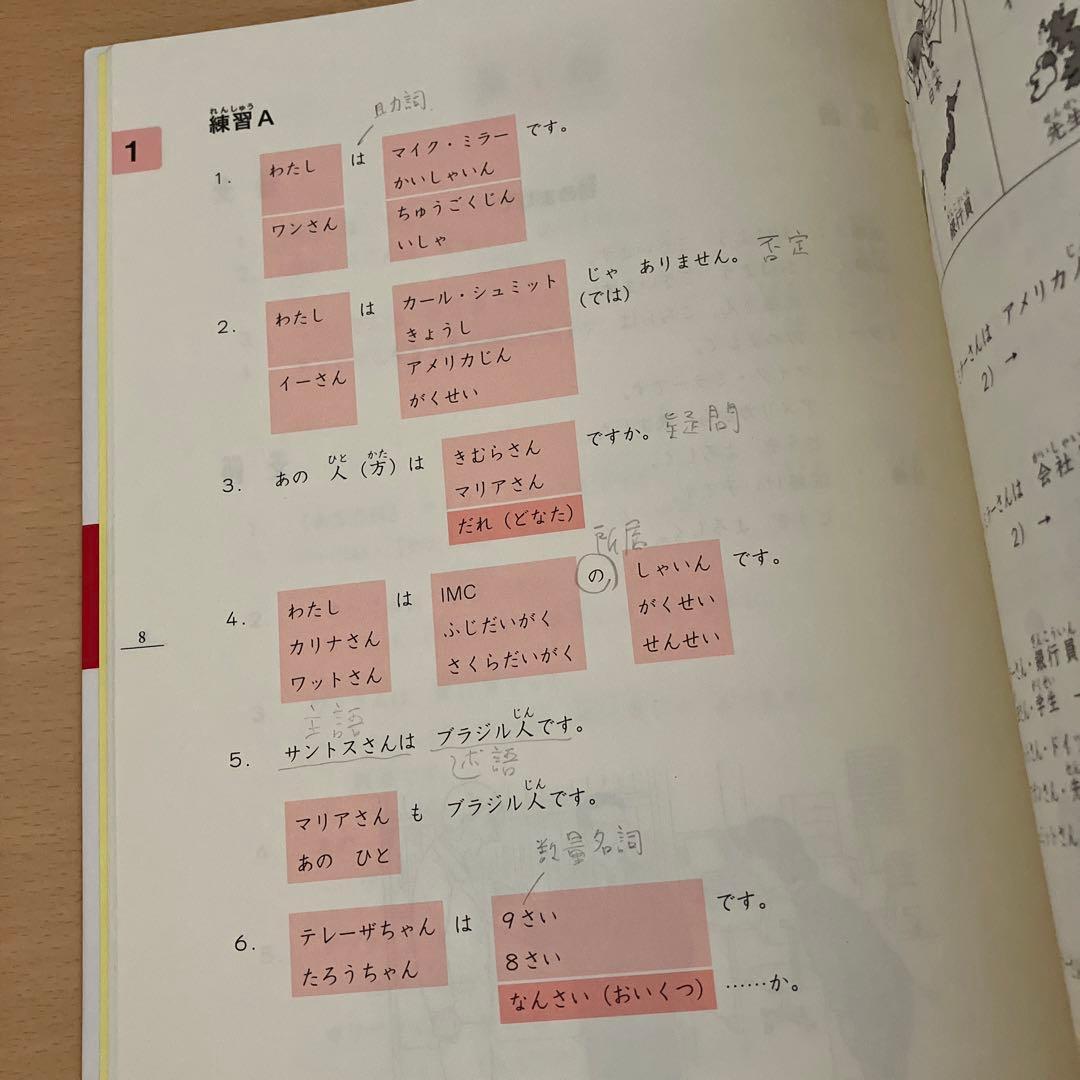 れんしゅう
練習A
助詞
1
1. わたし は マイク・ミラー です。
かいしゃいん
ワンさん ちゅうごくじん
いしゃ
2. わたし は カール・シュミット じゃ ありません。 否定
きょうし (では)
イーさん アメリカじん
がくせい
3. あの 人(方)は きむらさん ですか。 疑問
ひと かた
マリアさん
だれ(どなた)
所属
4. わたし は IMC の しゃいん です。
カリナさん ふじだいがく がくせい
ワットさん さくらだいがく せんせい
8
主語
じん
5. サントスさんは ブラジル人です。
述語
じん
マリアさん も ブラジル人です。
あの ひと
数量名詞
6. テレーザちゃん は 9さい です。
たろうちゃん 8さい
なんさい(おいくつ) ……か。
日本
銀行員
先生
ーさんは アメリカ
2) →
かいしゃい
ーさんは 会社
2) →
ぎんこういん
さん・銀行員
がくせい
さん・学生
さん・ドイ
さん・先
ミットさん